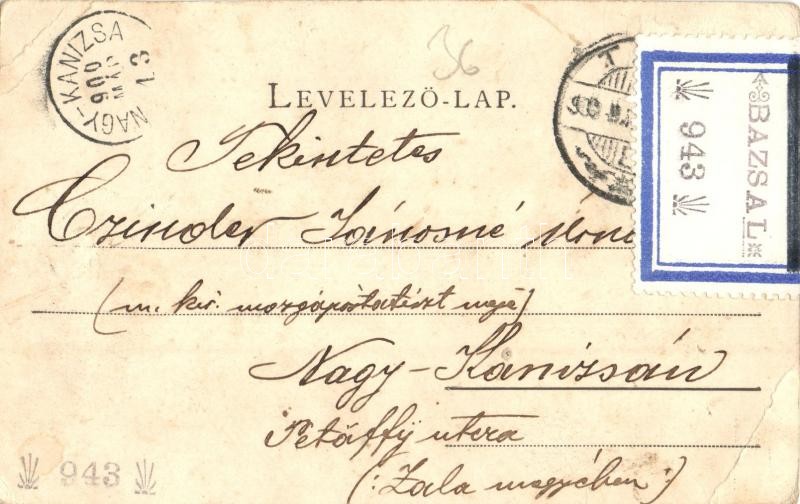 NAGY-KANIZSA
900
MÁR
13
36
LEVELEZŐ-LAP.
Tekintetes
Czinder Jánosné
(m. kir. mozgópostatiszt neje)
Nagy-Kanizsán
Petőffy utcza
(: Zala megyében :)
BAZSAL
943
943